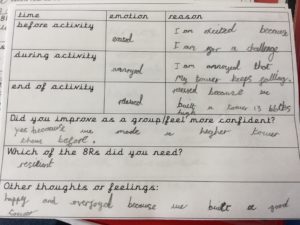 time emotion reason
before activity
excited I am excited because
I am for a challenge
during activity
annoyed I am annoyed that
My tower keeps falling.
end of activity
relieved relieved because we
built a tower 13 blocks
high
Did you improve as a group/feel more confident?
yes because we made a higher tower
then before.
Which of the 8Rs did you need?
resilient
Other thoughts or feelings:
happy and overjoyed because we built a good
tower